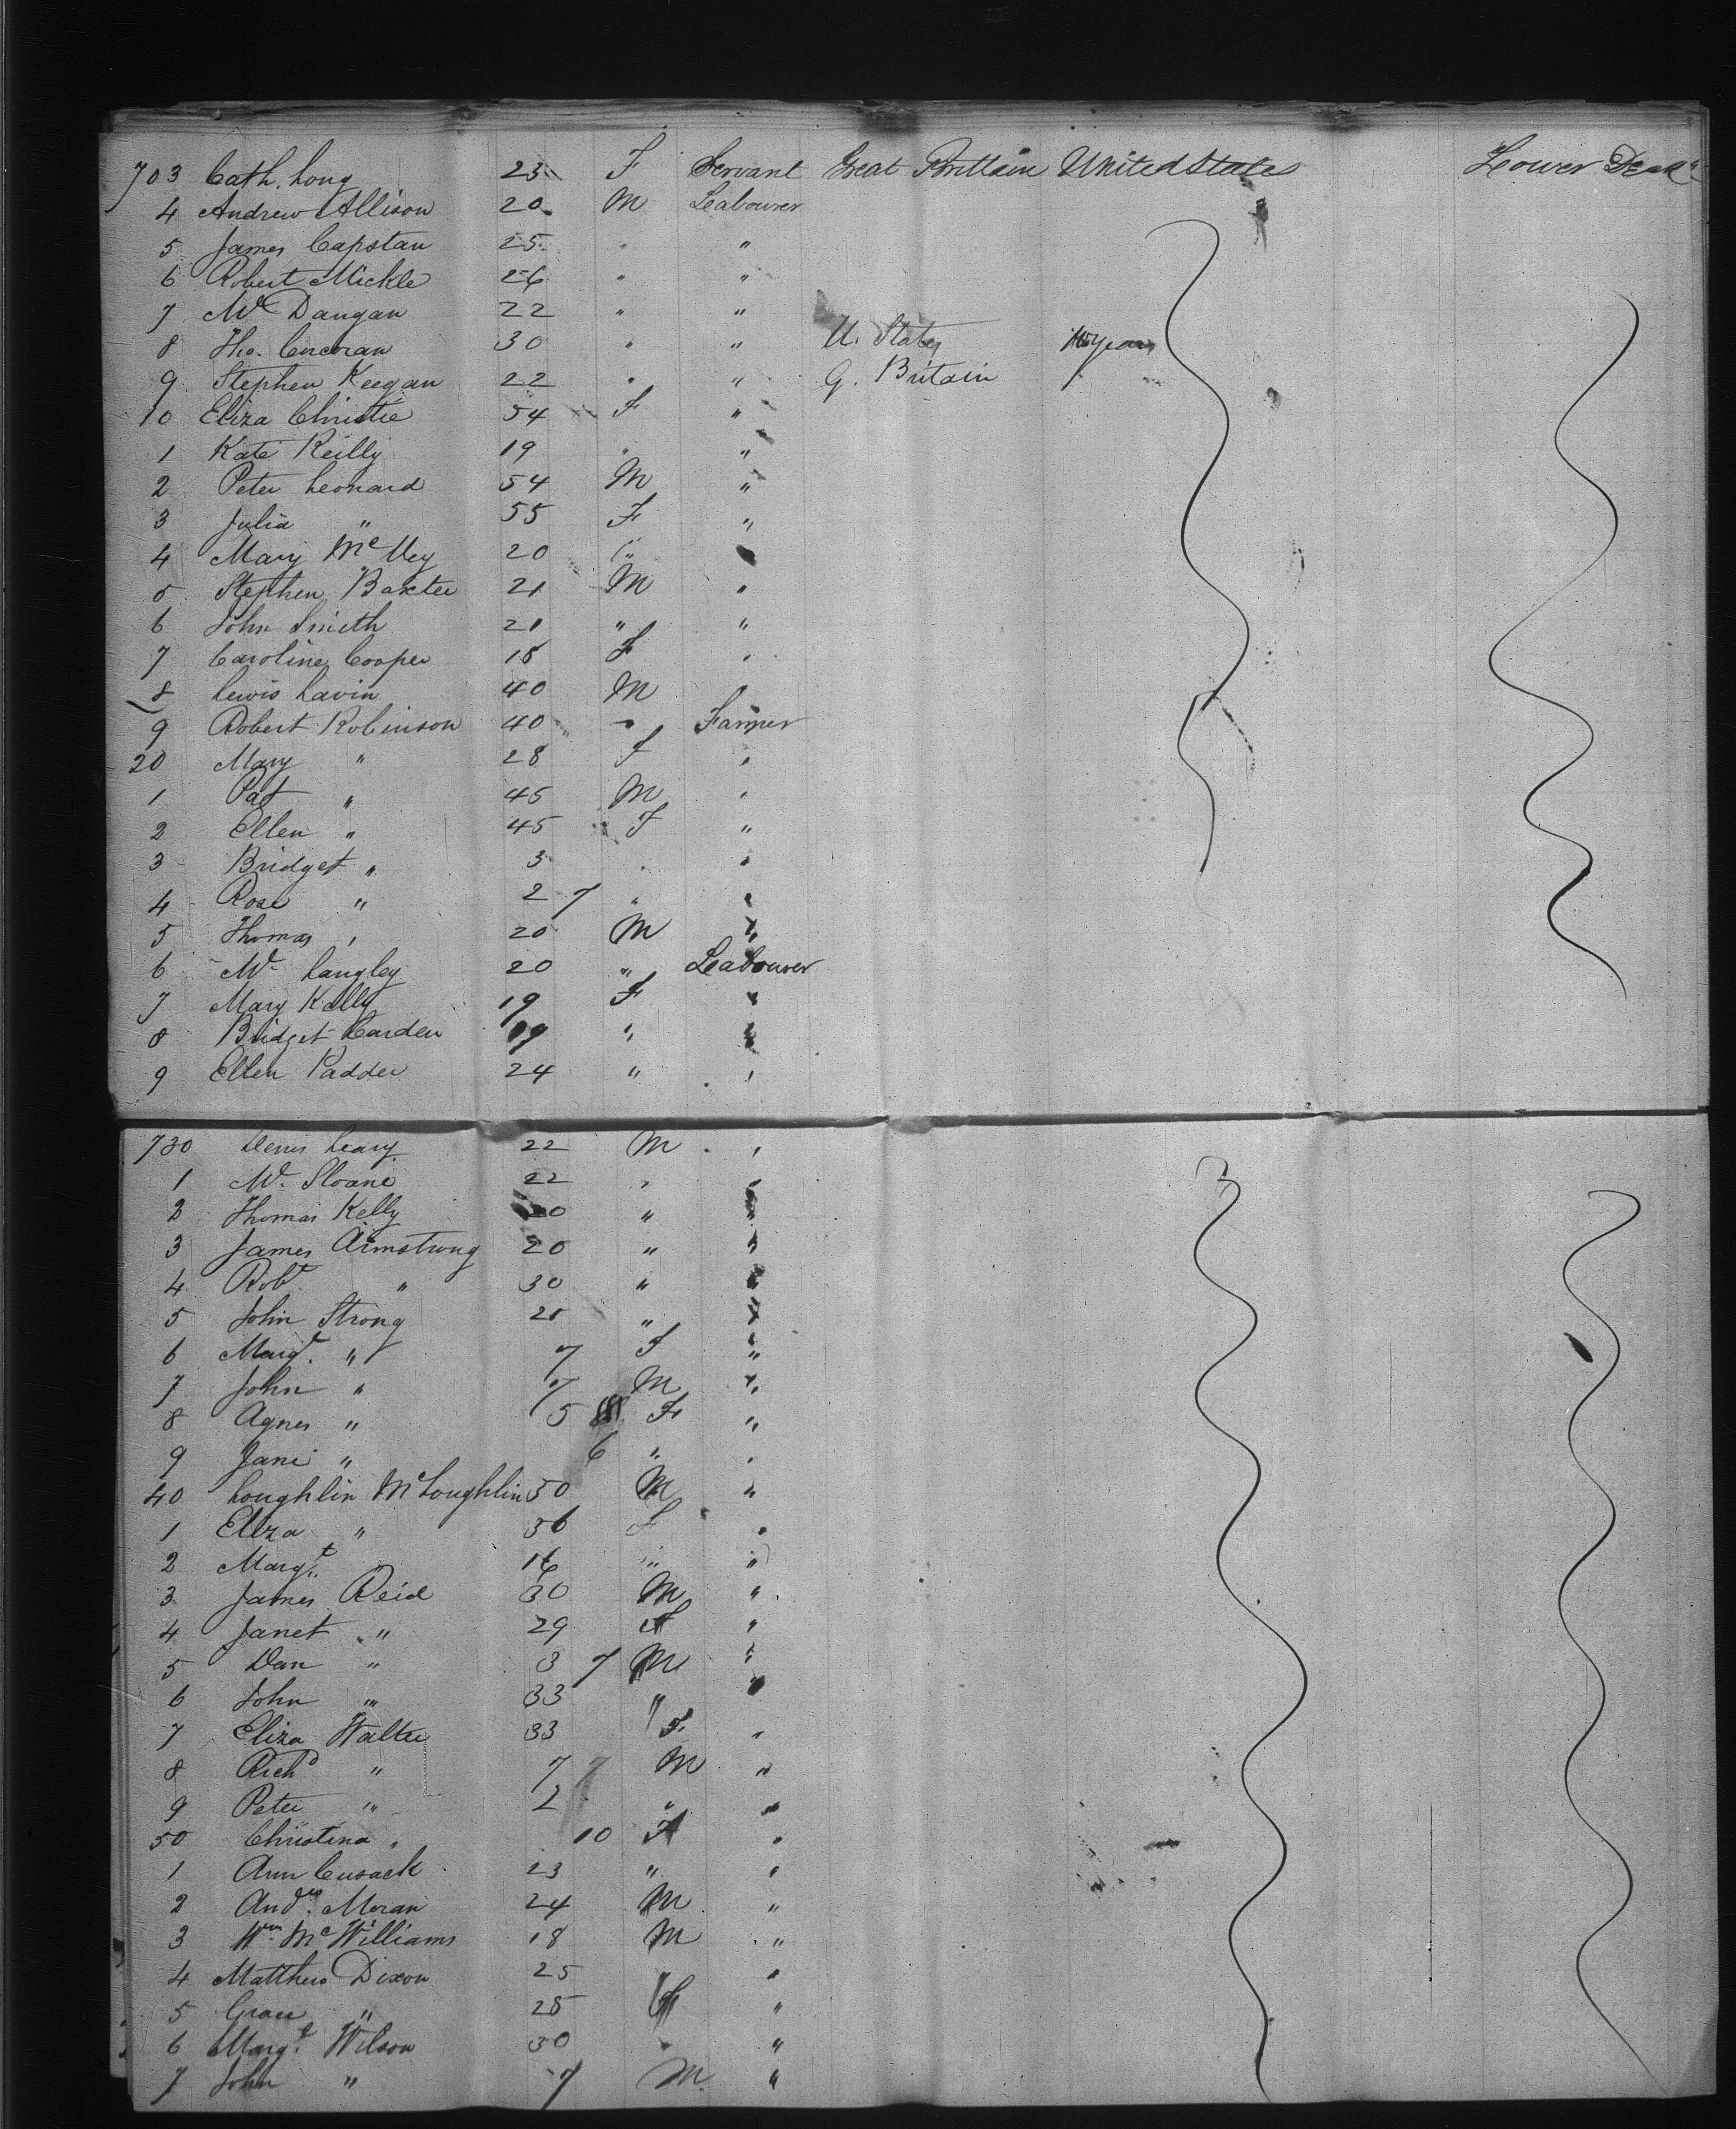 703 Cath. Long 23 F Servant Great Brittain United States Lower Deck
4 Andrew Allison 20 M Leabourer
5 James Capstan 25 " "
6 Robert Mickle 26 " "
7 Wm Dangan 22 " "
8 Tho. Corcoran 30 " " U. States years
9 Stephen Keegan 22 " " G. Britain
10 Eliza Christie 54 F "
1 Kate Reilly 19 " "
2 Peter Leonard 54 M "
3 Julia " 55 F "
4 Mary Mc Vey 20 "
5 Stephen Baxter 21 M "
6 John Smith 21 " "
7 Caroline Cooper 18 F "
8 Lewis Lavin 40 M "
9 Robert Robinson 40 " Farmer
20 Mary " 28 F "
1 Pat " 45 M "
2 Ellen " 45 F "
3 Bridget " 3 " "
4 Rose " 2 7 " "
5 Thomas " 20 M "
6 Wm Langley 20 " Leabourer
7 Mary Kelly 19 F "
8 Bridget Carden 19 " "
9 Ellen Padder 24 " "
730 Denis Leary 22 M "
1 Wm Sloane 22 " "
2 Thomas Kelly 20 " "
3 James Armstrong 20 " "
4 Robt " 30 " "
5 John Strong " "
6 Margt. " 7 F "
7 John " 7 M "
8 Agnes " 5 F "
9 Jane " 6 " "
40 Loughlin McLoughlin 50 M "
1 Eliza " 36 F "
2 Margt. " 16 " "
3 James Reid 30 M "
4 Janet " 29 F "
5 Dan " 3 7 M "
6 John " 33 " "
7 Eliza Walter 33 F "
8 Richd " 7 M "
9 Peter " 2 " "
50 Christina " 10 F "
1 Ann Cusack 23 " "
2 Andw. Moran 24 M "
3 Wm McWilliams 18 M "
4 Matthew Dixon 25 "
5 Grace " 25 "
6 Margt. Wilson 30 " "
7 John " 7 M "